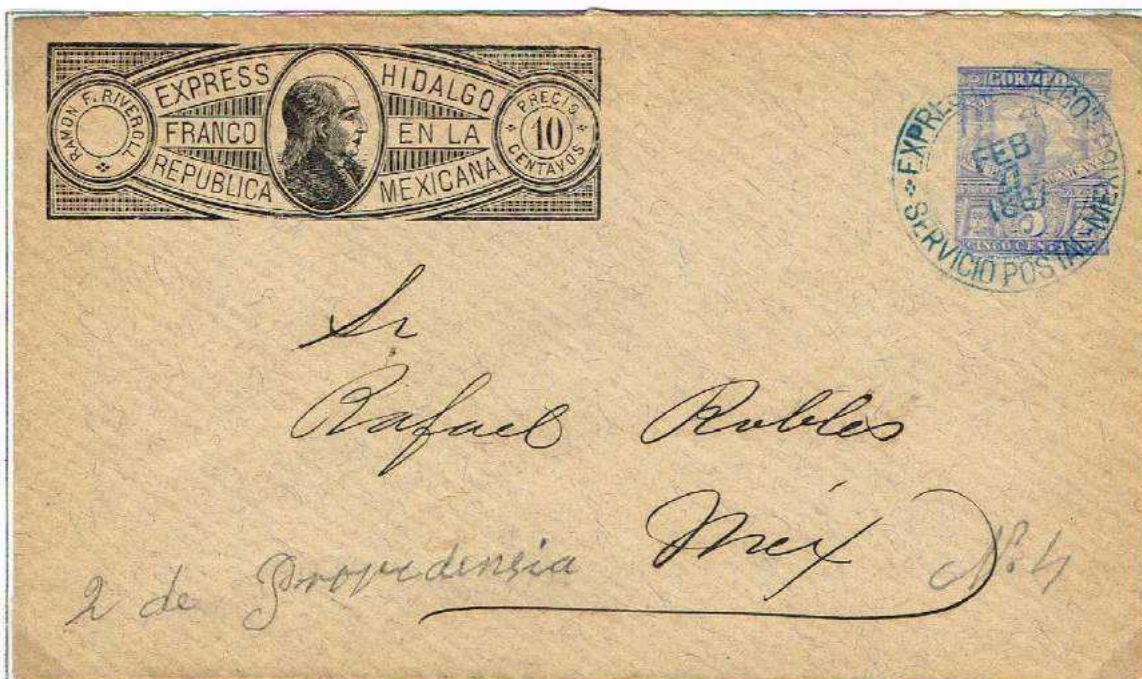 RAMON F. RIVEROLL
EXPRESS HIDALGO
FRANCO EN LA
REPUBLICA MEXICANA
PRECIO
10
CENTAVOS
CORREO
5
CINCO CENT
EXPRE HIDALGO"
FEB
SERVICIO POSTAL-MEX
Sr
Rafael Robles
Mex
2 de Providencia No. 4